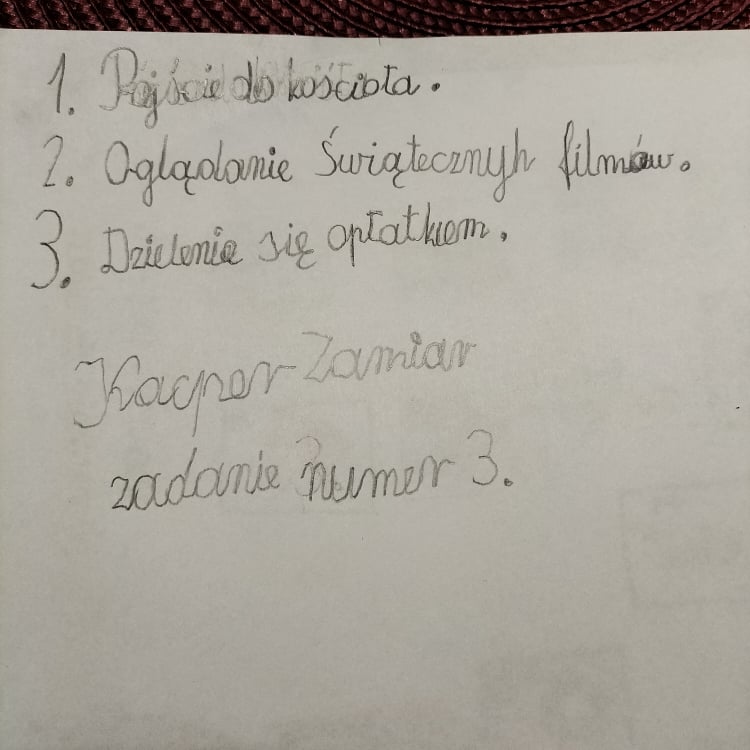 1. Pójście do kościoła.
2. Oglądanie świątecznyh filmów.
3. Dzielenie się opłatkiem.
Kacper Zamiar
zadanie numer 3.